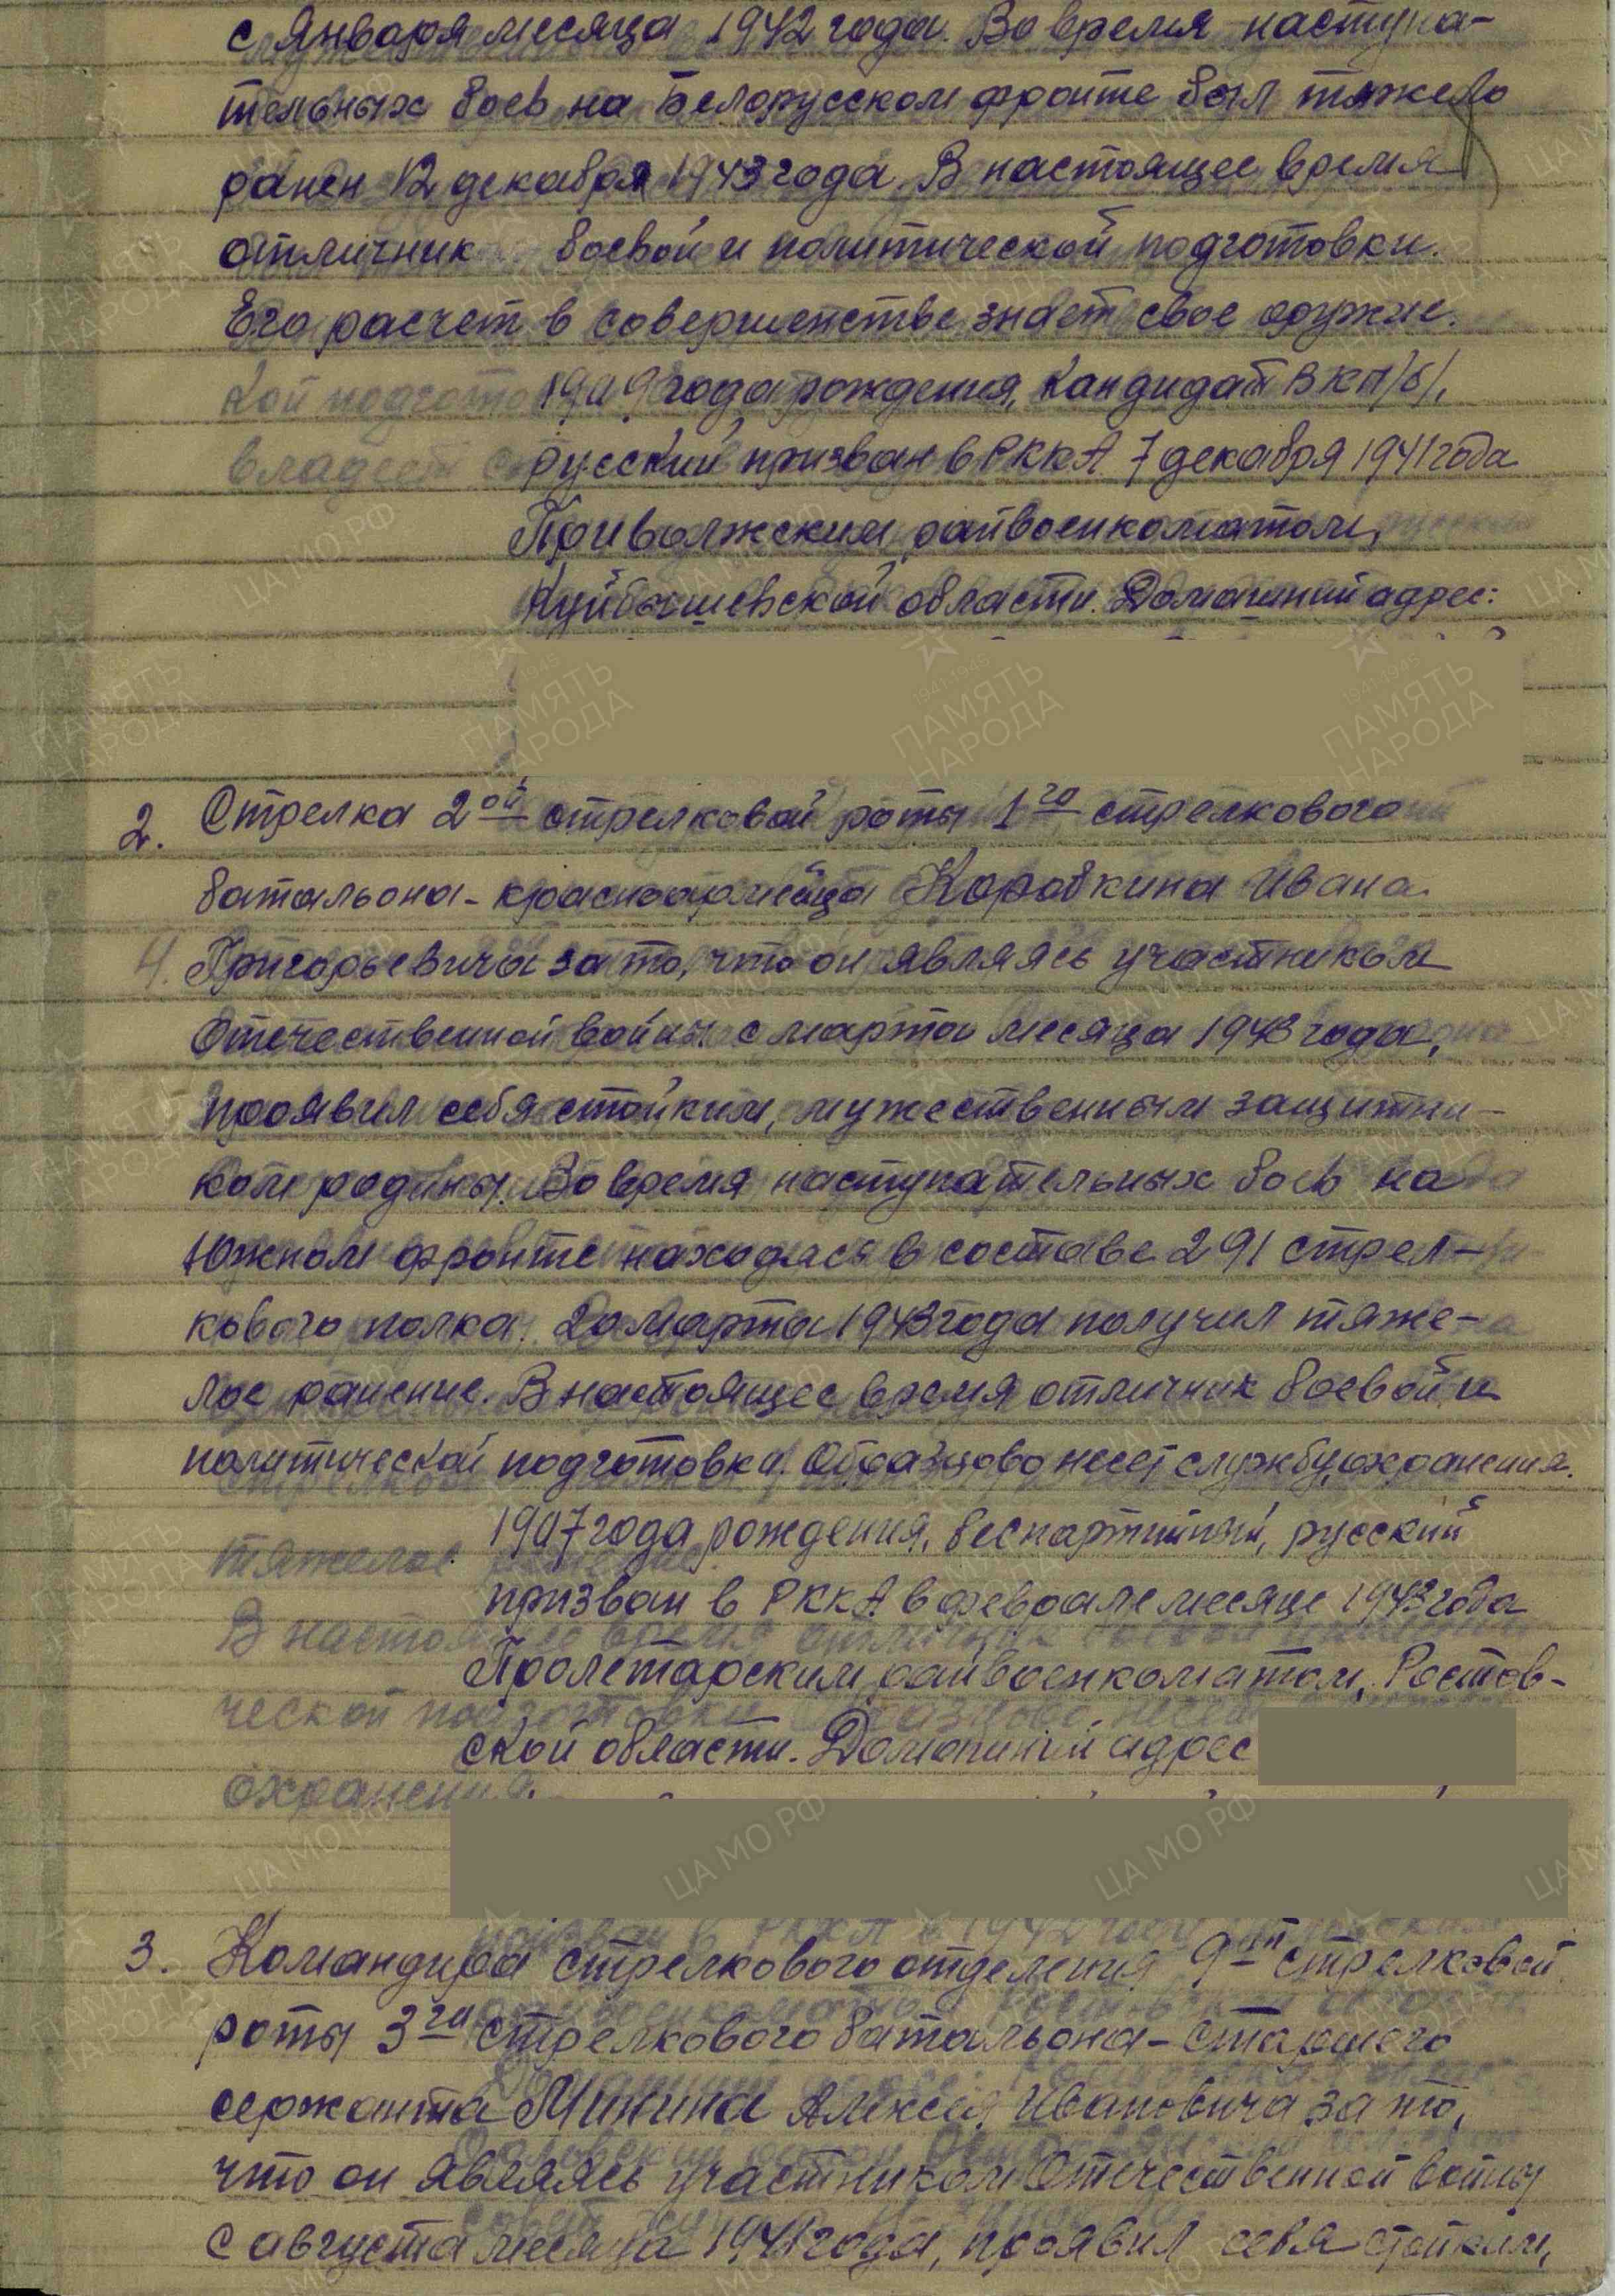 с января месяца 1942 года. Во время наступа-
тельных боев на Белорусском фронте был тяжело
ранен 12 декабря 1943 года. В настоящее время
отличник боевой и политической подготовки.
Его расчет в совершенстве знает свое оружие.
1909 года рождения, кандидат ВКП/б/,
русский призван в РККА 7 декабря 1941 года
Приволжским райвоенкоматом,
Куйбышевской области. Домашний адрес:
2. Стрелка 2ой стрелковой роты 1го стрелкового
батальона - красноармейца Коробкина Ивана
Григорьевича за то, что он являясь участником
Отечественной войны с марта месяца 1943 года,
проявил себя стойким, мужественным защитни-
ком родины. Во время наступательных боев на
Южном фронте находясь в составе 291 стрел-
кового полка. 20 марта 1943 года получил тяже-
лое ранение. В настоящее время отличник боевой и
политической подготовки. Образцово несет службу охранения.
1907 года рождения, беспартийный, русский
призван в РККА в феврале месяце 1943 года
Пролетарским райвоенкоматом, Ростов-
ской области. Домашний адрес
3. Командира стрелкового отделения 9ой стрелковой
роты 3го стрелкового батальона - старшего
сержанта Минина Алексея Ивановича за то,
что он являясь участником Отечественной войны
с августа месяца 1941 года, проявил себя стойким,